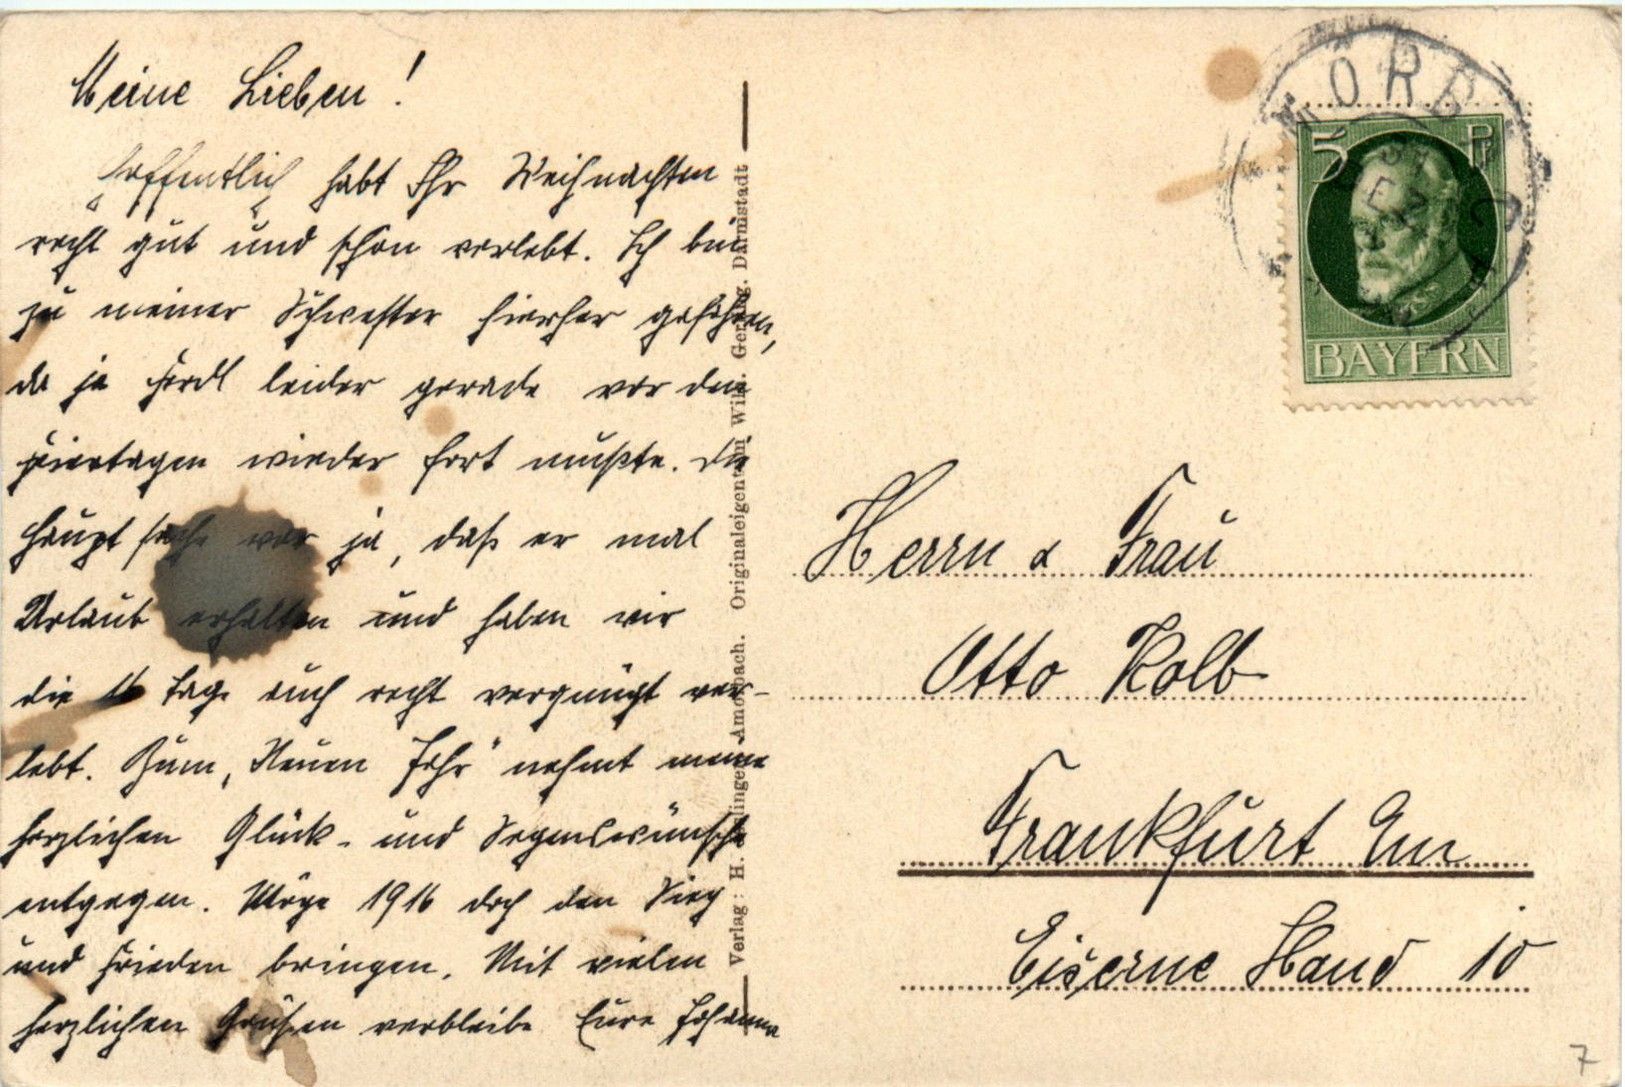 Meine Lieben!
Hoffentlich habt Ihr Weihnachten
recht gut und schön verlebt. Ich bin
zu meiner Schwester hierher gefahren,
da ja Ferdl leider gerade vor den
Feiertagen wieder fort mußte. Die
Hauptsache war ja, daß er mal
Urlaub erhalten und haben wir
die 16 Tage auch recht vergnügt ver-
lebt. Zum „Neuen Jahr" nehmt meine
herzlichen Glück- und Segenswünsche
entgegen. Möge 1916 doch den Sieg
und Frieden bringen. Mit vielen
herzlichen Grüßen verbleibe Eure Johanna
Verlag: H. Amorbach. Originaleigentum Wilh. Gerling. Darmstadt
5 Pf
BAYERN
Herrn & Frau
Otto Kolb
Frankfurt
Eiserne Hand 10
7